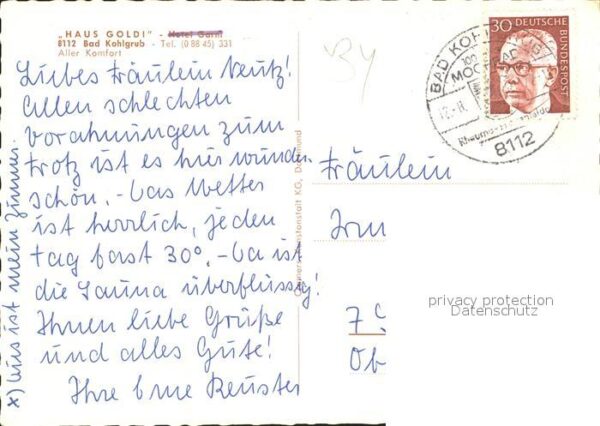 „HAUS GOLDI" - Hotel Garni
8112 Bad Kohlgrub - Tel. (0 88 45) 331
Aller Komfort
Liebes Fräulein
Allen schlechten
Vorahnungen zum
trotz ist es hier wunder
schön. - Das Wetter
ist herrlich, jeden
tag fast 30°. - Da ist
die Sauna überflüssig!
Ihnen liebe Grüße
und alles Gute!
Ihre
x) mein Zimmer.
30 DEUTSCHE BUNDESPOST
BAD KOHL
8112
Fräulein
Irm
7 c
Ob
privacy protection
Datenschutz